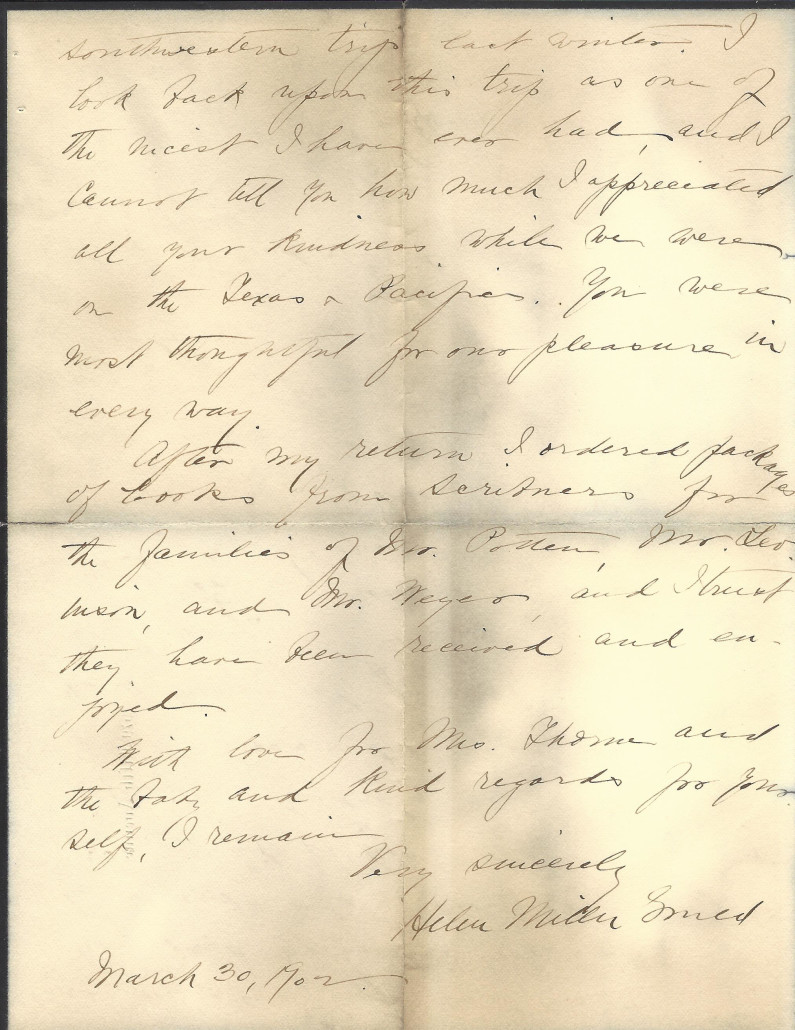 southwestern trip last winter. I
look back upon this trip as one of
the nicest I have ever had, and I
cannot tell you how much I appreciated
all your kindness while we were
on the Texas & Pacific. You were
most thoughtful for our pleasure in
every way.
After my return I ordered packages
of books from Scribners for
the families of Mr. Potten, Mr. Lev.
inson, and Mr. Weyer, and I trust
they have been received and en-
joyed.
With love for Mrs. Thorne and
the baby and kind regards for your.
self, I remain
Very sincerely
Helen Miller Gould
March 30, 1902.